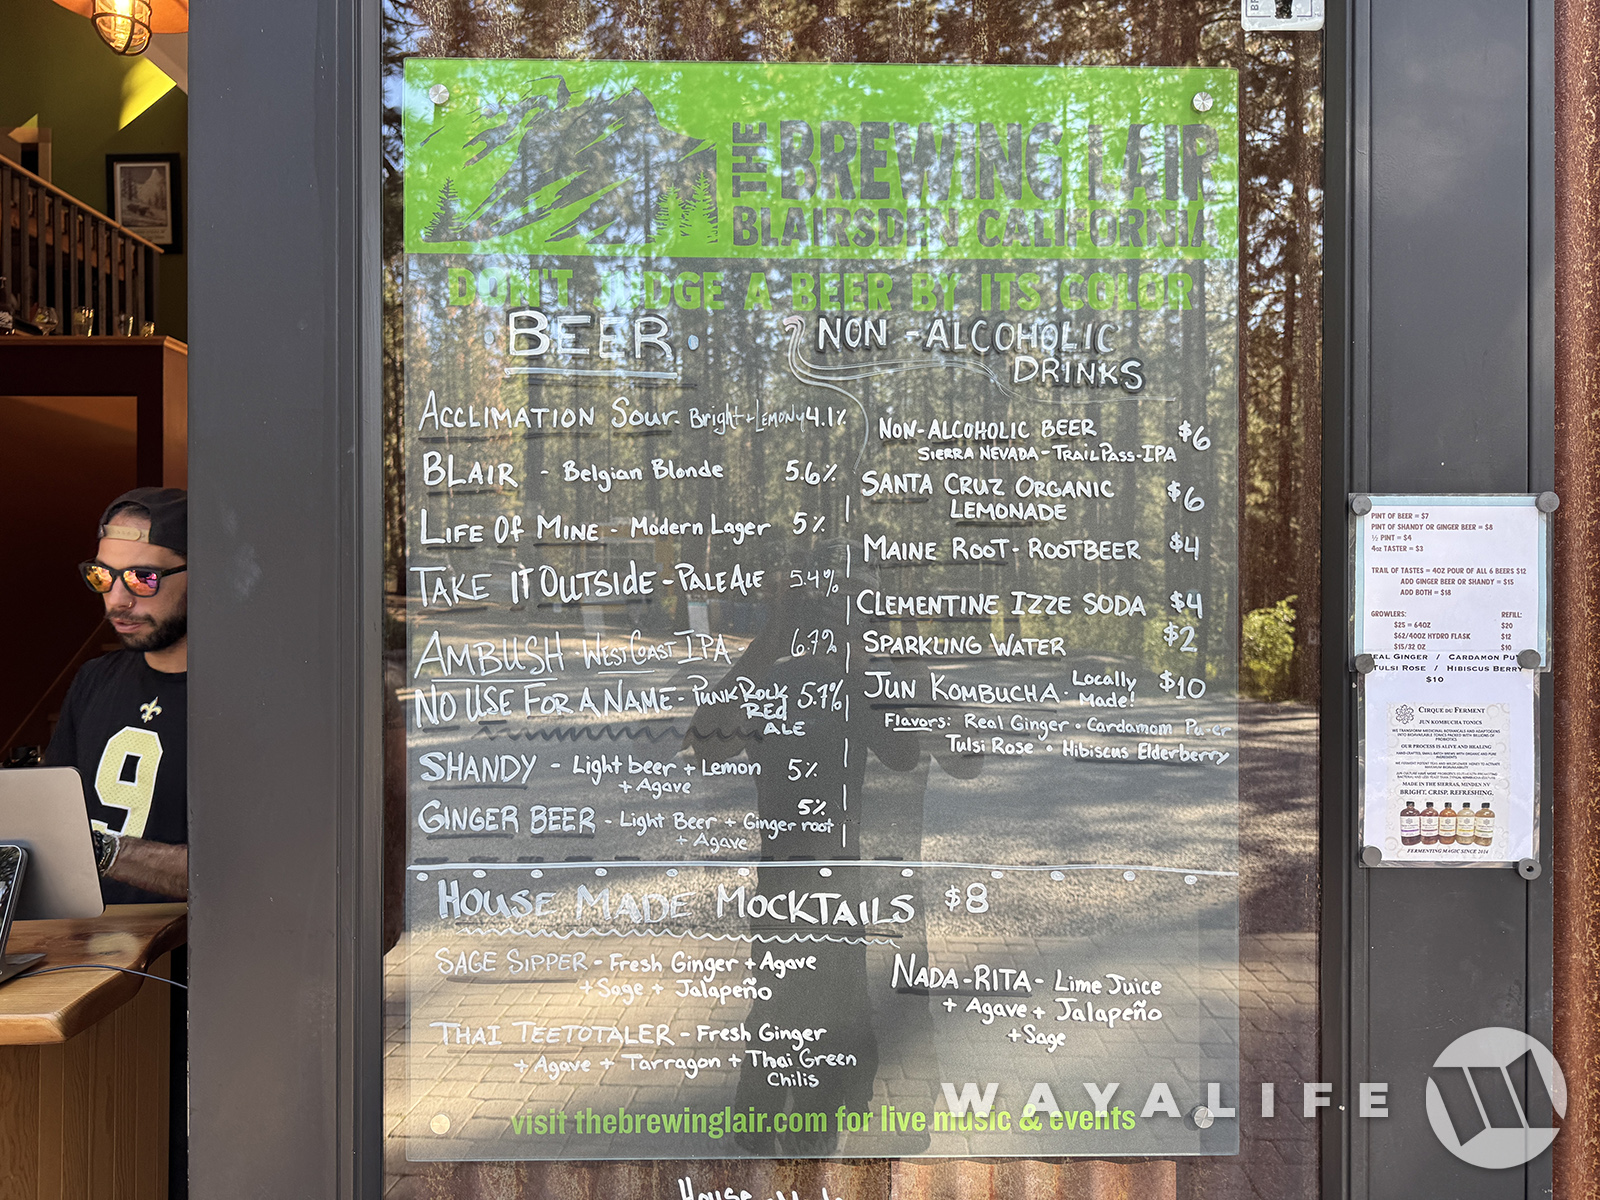 THE
BREWING LAIR
BLAIRSDEN CALIFORNIA
DON'T JUDGE A BEER BY ITS COLOR
BEER
ACCLIMATION SOUR - Bright + LEMONY 4.1%
BLAIR - Belgian Blonde 5.6%
LIFE OF MINE - Modern Lager 5%
TAKE IT OUTSIDE - PALE ALE 5.4%
AMBUSH - WEST COAST IPA - 6.7%
NO USE FOR A NAME - PUNK ROCK 5.7%
RED
ALE
SHANDY - Light beer + Lemon 5%
+ Agave
GINGER BEER - Light Beer + Ginger root 5%
+ Agave
NON-ALCOHOLIC
DRINKS
NON-ALCOHOLIC BEER $6
SIERRA NEVADA - TRAIL PASS - IPA
SANTA CRUZ ORGANIC $6
LEMONADE
MAINE ROOT - ROOTBEER $4
CLEMENTINE IZZE SODA $4
SPARKLING WATER $2
JUN KOMBUCHA - Locally $10
Made!
Flavors: Real Ginger • Cardamom
Tulsi Rose • Hibiscus Elderberry
HOUSE MADE MOCKTAILS $8
SAGE SIPPER - Fresh Ginger + Agave
+ Sage + Jalapeño
THAI TEETOTALER - Fresh Ginger
+ Agave + Tarragon + Thai Green
Chilis
NADA-RITA - Lime Juice
+ Agave + Jalapeño
+ Sage
visit thebrewinglair.com for live music & events
HOUSE
PINT OF BEER = $7
PINT OF SHANDY OR GINGER BEER = $8
½ PINT = $4
4oz TASTER = $3
TRAIL OF TASTES = 4OZ POUR OF ALL 6 BEERS $12
ADD GINGER BEER OR SHANDY = $15
ADD BOTH = $18
GROWLERS: REFILL:
$25 = 64OZ $20
$62/40OZ HYDRO FLASK $12
$15/32 OZ $10
EAL GINGER / CARDAMON PU
TULSI ROSE / HIBISCUS BERRY
$10
CIRQUE DU FERMENT
JUN KOMBUCHA TONICS
OUR PROCESS IS ALIVE AND HEALING
MADE IN THE SIERRAS, MINDEN NV
BRIGHT, CRISP, REFRESHING.
FERMENTING MAGIC SINCE 2014
9
WAYALIFE